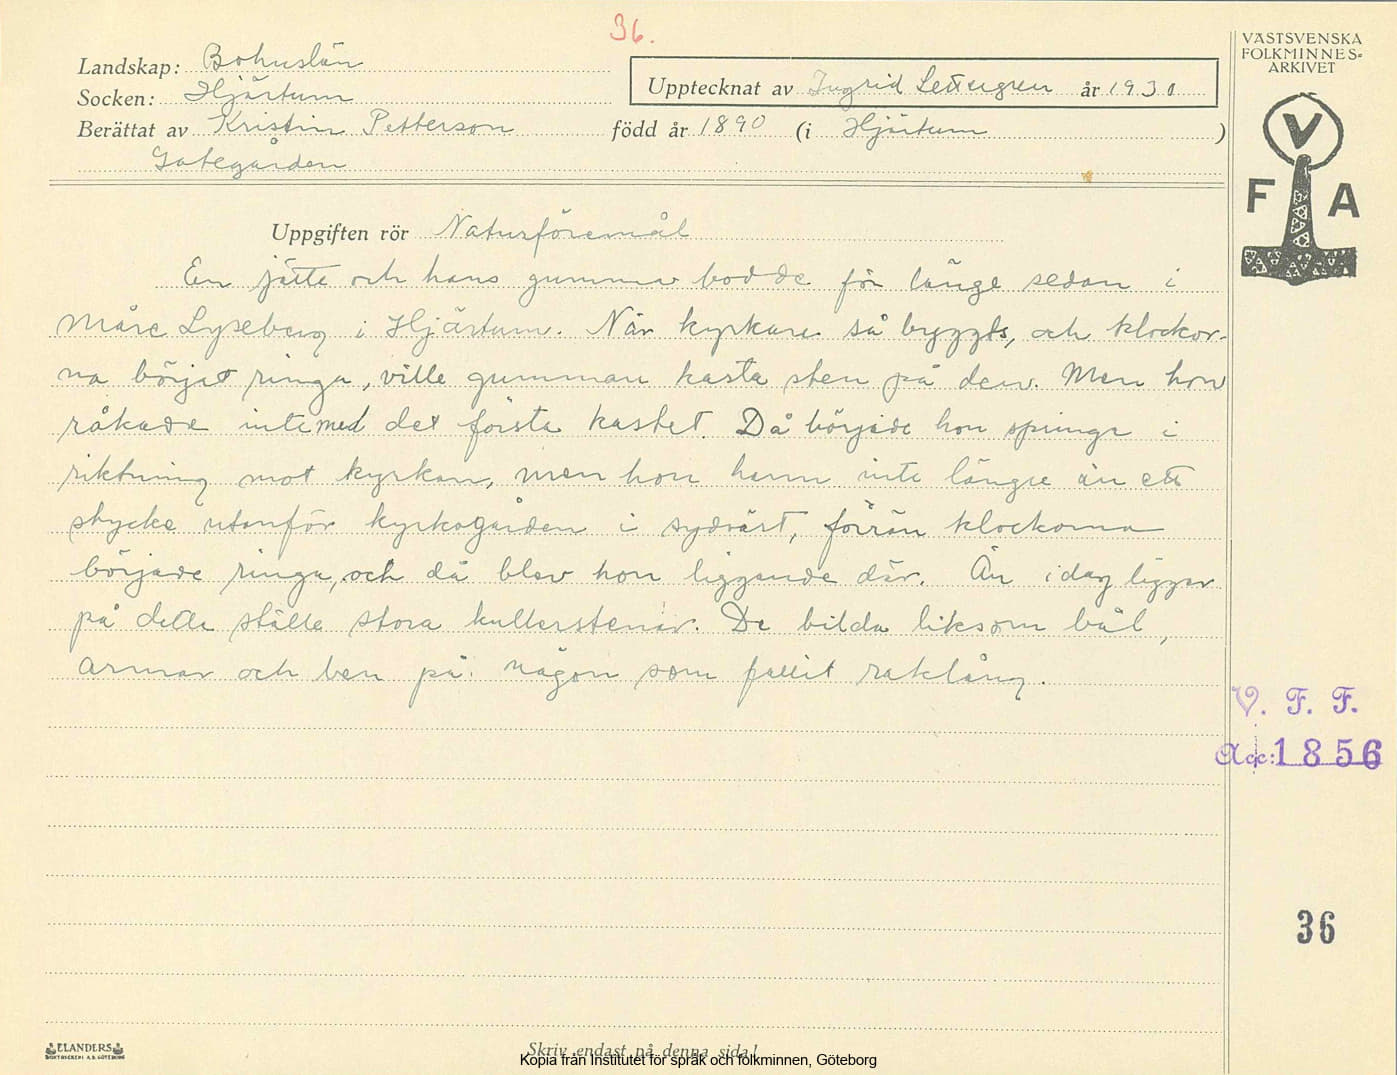 36.
Landskap: Bohuslän
Socken: Hjärtum
Upptecknat av Ingrid år 1930
Berättat av Kristin Petterson född år 1890 (i Hjärtum)
Gategården
Uppgiften rör Naturföremål
En jätte och hans gumma bodde för länge sedan i
Lyseberg i Hjärtum. När kyrkan så byggts, och klockor-
na börjat ringa, ville gumman kasta sten på den. Men hon
råkade inte med det första kastet. Då började hon springa i
riktning mot kyrkan, men hon hann inte längre än ett
stycke utanför kyrkogården i sydväst, förrän klockorna
började ringa, och då blev hon liggande där. Än idag ligger
på detta ställe stora kullerstenar. De bilda liksom bål,
armar och ben på någon som fallit raklång.
VÄSTSVENSKA
FOLKMINNES-
ARKIVET
V
F A
V. F. F.
Acc: 1856
36
ELANDERS
BOKTRYCKERI A.B. GÖTEBORG
Skriv endast på denna sida!
Kopia från Institutet för språk och folkminnen, Göteborg